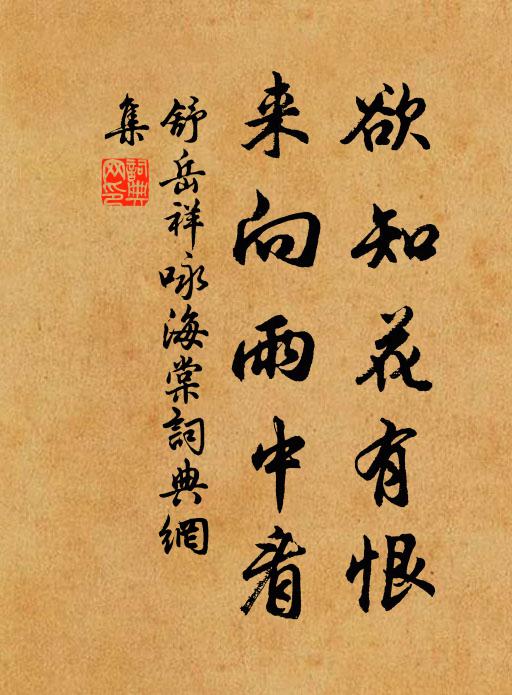 欲知花有恨
来向雨中看
舒岳祥咏海棠詞典網
集
詞典
网印